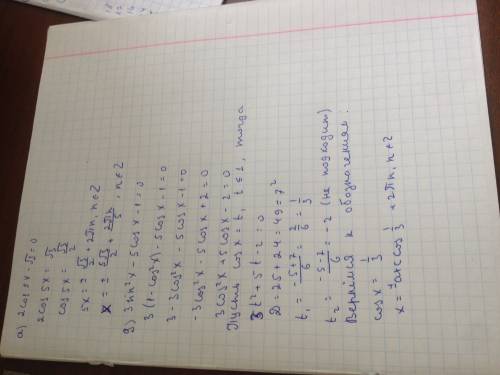 а) 2cos5x - √3 = 0
2cos 5x = √3
cos 5x = √3/2
5x = ± √3/2 + 2πn, n∈Z
x = ± 5√3/2 + 2πn/5, n∈Z
2) 3sin²x - 5cosx - 1 = 0
3(1-cos²x) - 5cosx - 1 = 0
3 - 3cos²x - 5cosx - 1 = 0
-3cos²x - 5cosx + 2 = 0
3cos²x + 5cosx - 2 = 0
Пусть cosx = t, t ≤ 1, тогда
3t² + 5t - 2 = 0
D = 25 + 24 = 49 = 7²
t₁ = (-5+7)/6 = 2/6 = 1/3
t₂ = (-5-7)/6 = -2 (не подходит)
Вернёмся к обозначениям:
cosx = 1/3
x = ± arccos 1/3 + 2πn, n∈Z